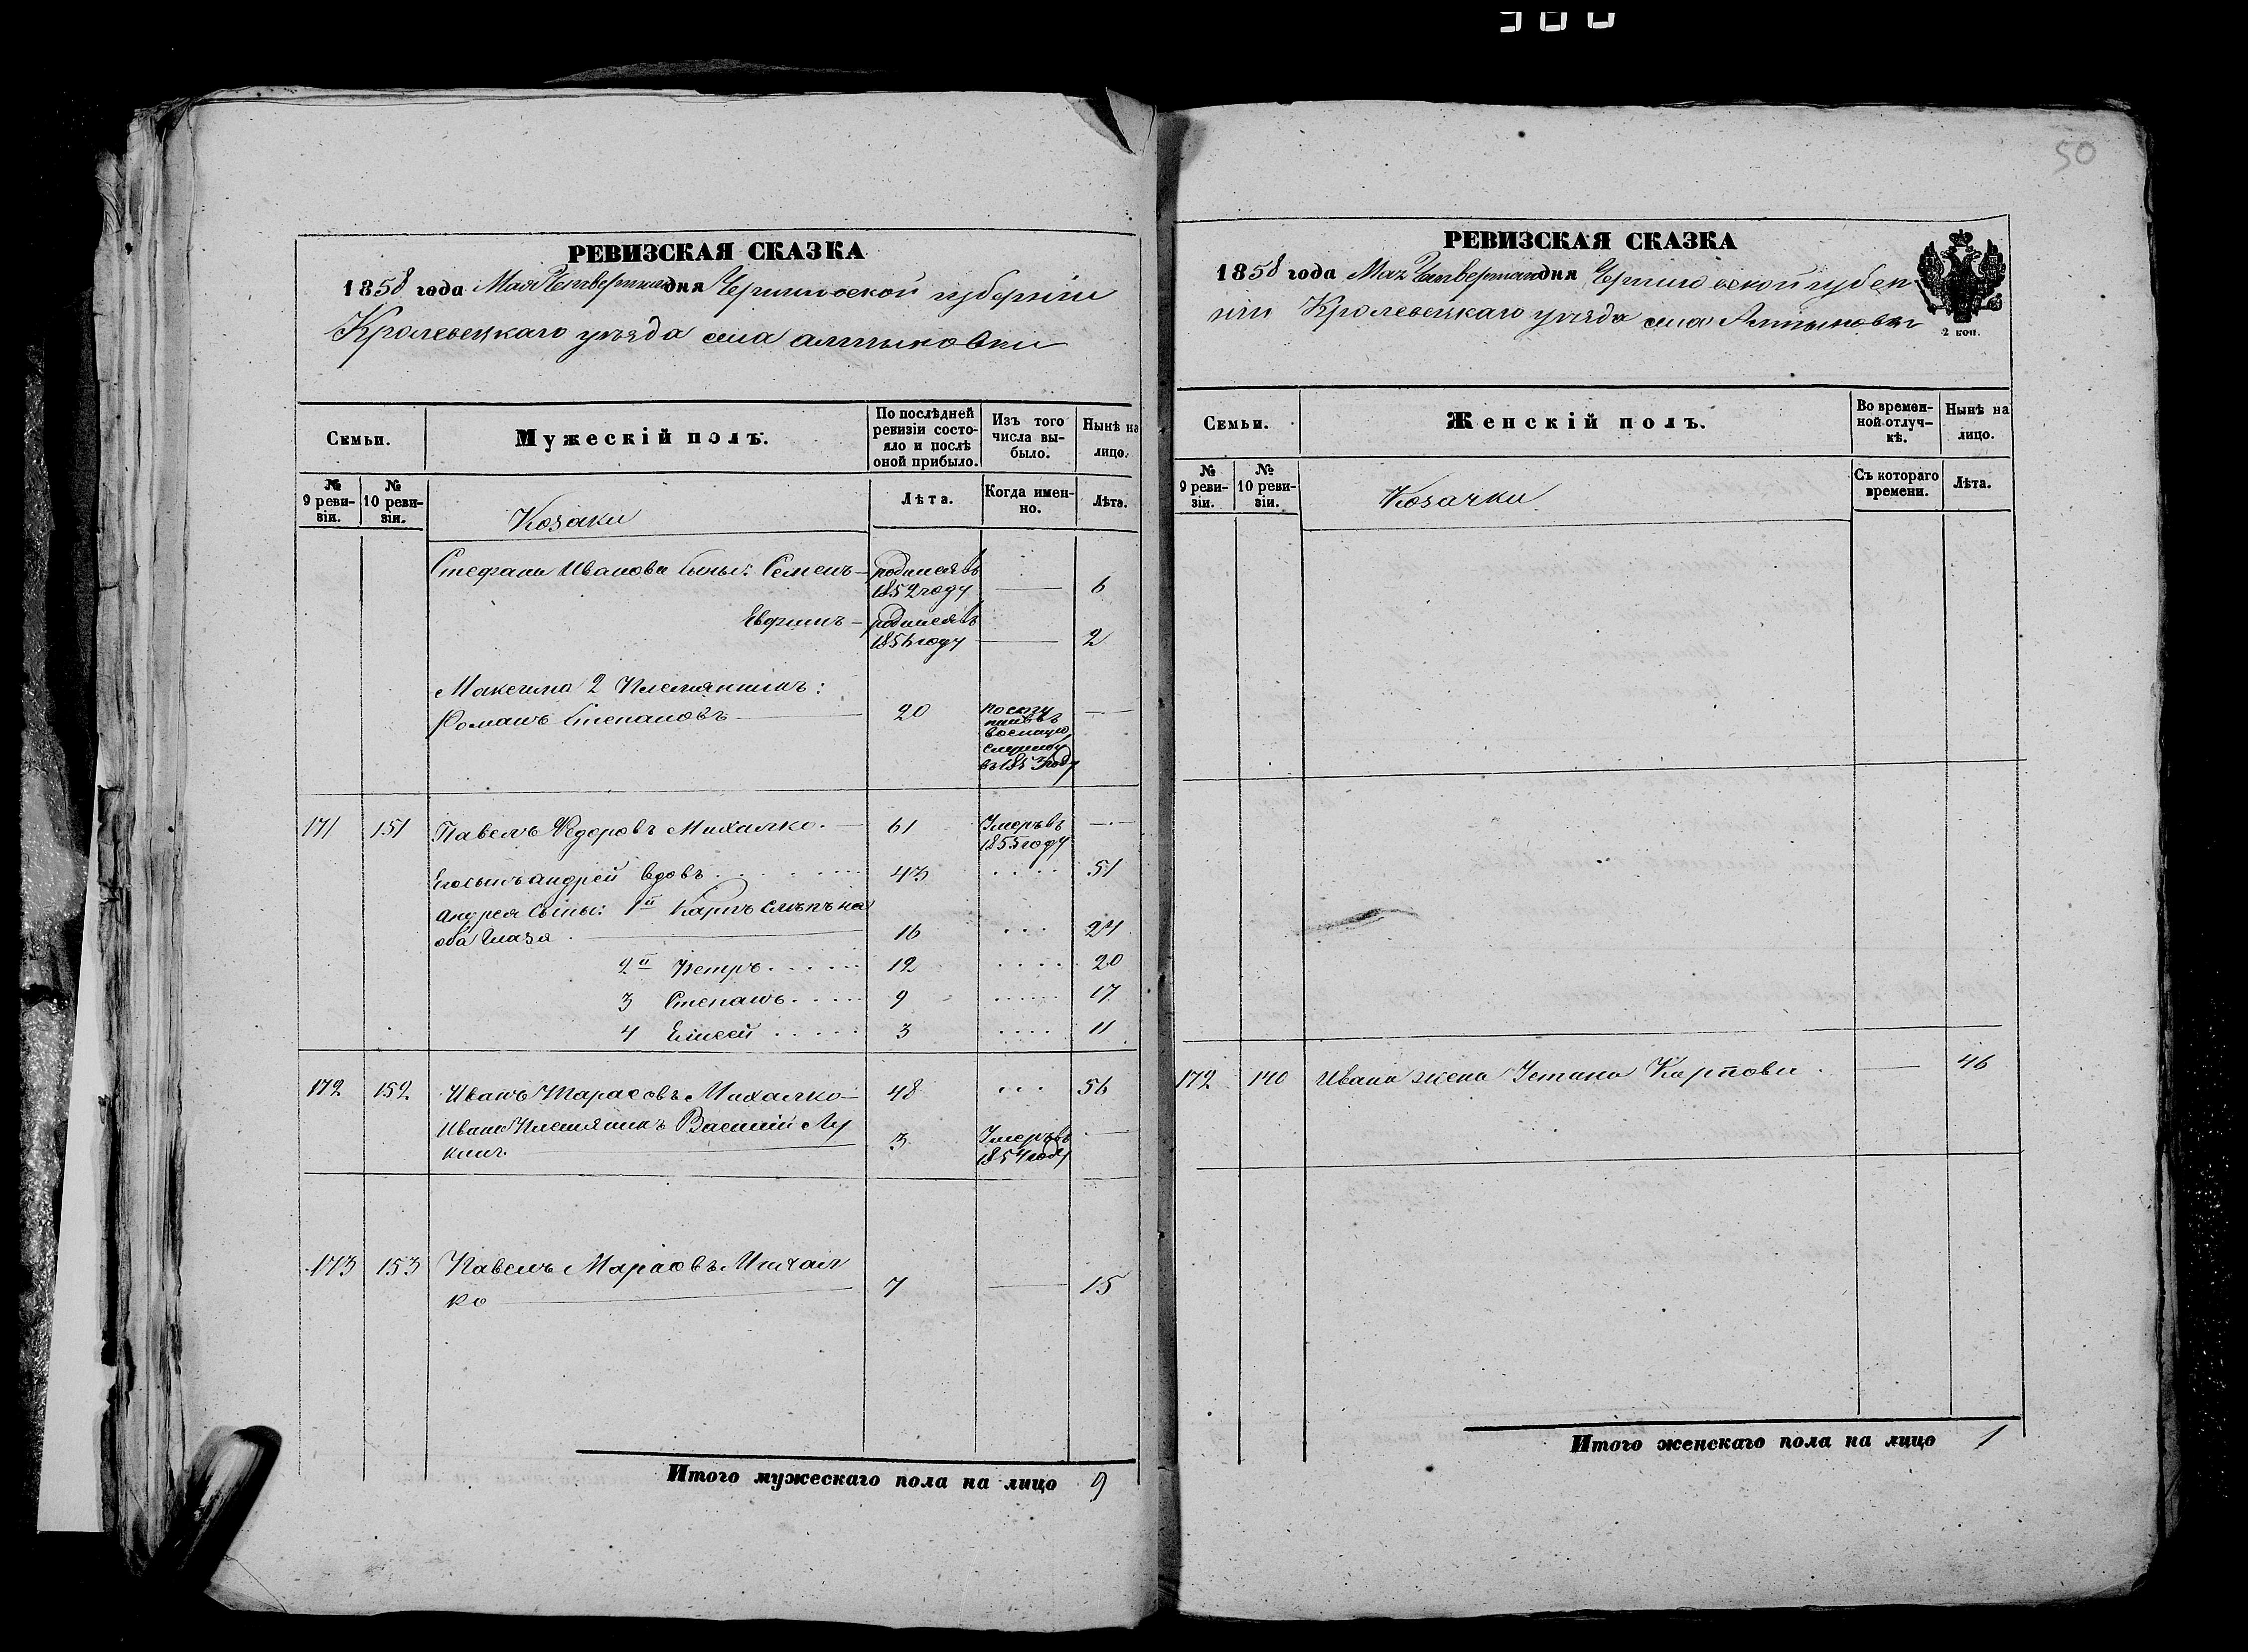 50
РЕВИЗСКАЯ СКАЗКА
1858 года Мая Четвертаго дня Черниговской губернiи
Кролевецкаго уѣзда села алтыновки
Семьи.
Мужескiй полъ.
По послѣдней ревизiи состояло и послѣ оной прибыло.
Изъ того числа выбыло.
Нынѣ на лицо.
№ 9 ревизiи.
№ 10 ревизiи.
Козаки
Лѣта.
Когда именно.
Лѣта.
Стефана Иванова сыны: Семенъ — родился въ
1852 году — 6
Евфимъ — родился въ
1856 году — 2
Максима 2 Племянникъ:
Романъ Степановъ — 20 —
военную
службу
въ 1853 году
171 151 Павелъ Ѳедоровъ Михалко. — 61 Умеръ въ —
1855 году
Его сынъ андрей вдовъ 43 51
андрея сыны: 1й Карпъ слѣпъ на
оба глаза 16 24
2й Петръ 12 20
3 Степанъ 9 17
4 Елисей 3 11
172 152 Иванъ Тарасовъ Михалко — 48 56
Ивана Племянникъ Василiй Лу
кинъ 3 Умеръ въ —
1854 году
173 153 Павелъ Марковъ Михал
ко — 7 — 15
Итого мужескаго пола на лицо 9
РЕВИЗСКАЯ СКАЗКА
1858 года Мая Четвертаго дня Черниговской губер
нiи Кролевецкаго уѣзда села Алтыновки
2 коп.
Семьи.
Женскiй полъ.
Во временной отлучкѣ.
Нынѣ на лицо.
№ 9 ревизiи.
№ 10 ревизiи.
Козачки
Съ котораго времени.
Лѣта.
172 140 Ивана жена Устина Карпова — 46
Итого женскаго пола на лицо 1